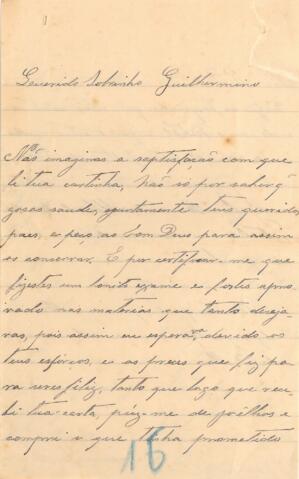 Querido Sobrinho Guilhermino
Não imaginas a saptisfação com que
li tua cartinha, não só por saber q̃
gosas saude, ajuntamente teus queridos
paes, e peço ao bom Deus para assim
os conservar. E por certificar-me que
fizestes um bonito exame e fostes apro-
vado nas materias que tanto deseja-
vas, pois assim eu esperava devido os
teus esforços, e as preces que fiz pa
ra seres feliz, tanto que logo que rece-
bi tua carta, puz-me de joêlhos e
compri o que tinha promettido
16